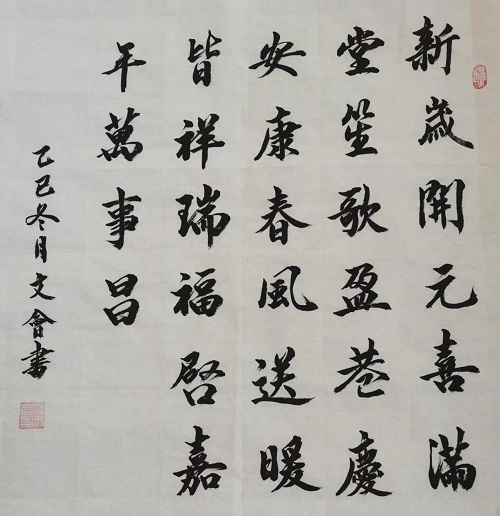 新歲開元喜滿
堂笙歌盈巷慶
安康春風送暖
皆祥瑞福啓嘉
年萬事昌
乙巳冬月文會書